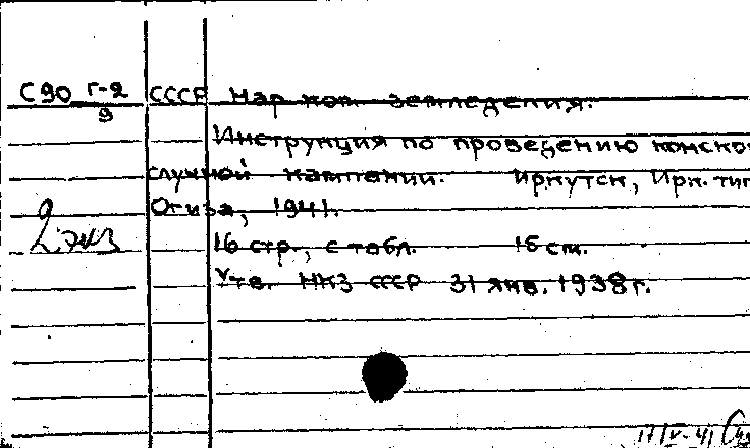 С90 г-2 СССР Нар ком. земледелия.
9
Инструкция по проведению конско
случной кампании. Иркутск, Ирк. тип
Огиза, 1941.
2 экз
16 стр., с табл. 15 см.
Утв. НКЗ СССР 31 янв. 1938г.
17/IV-41